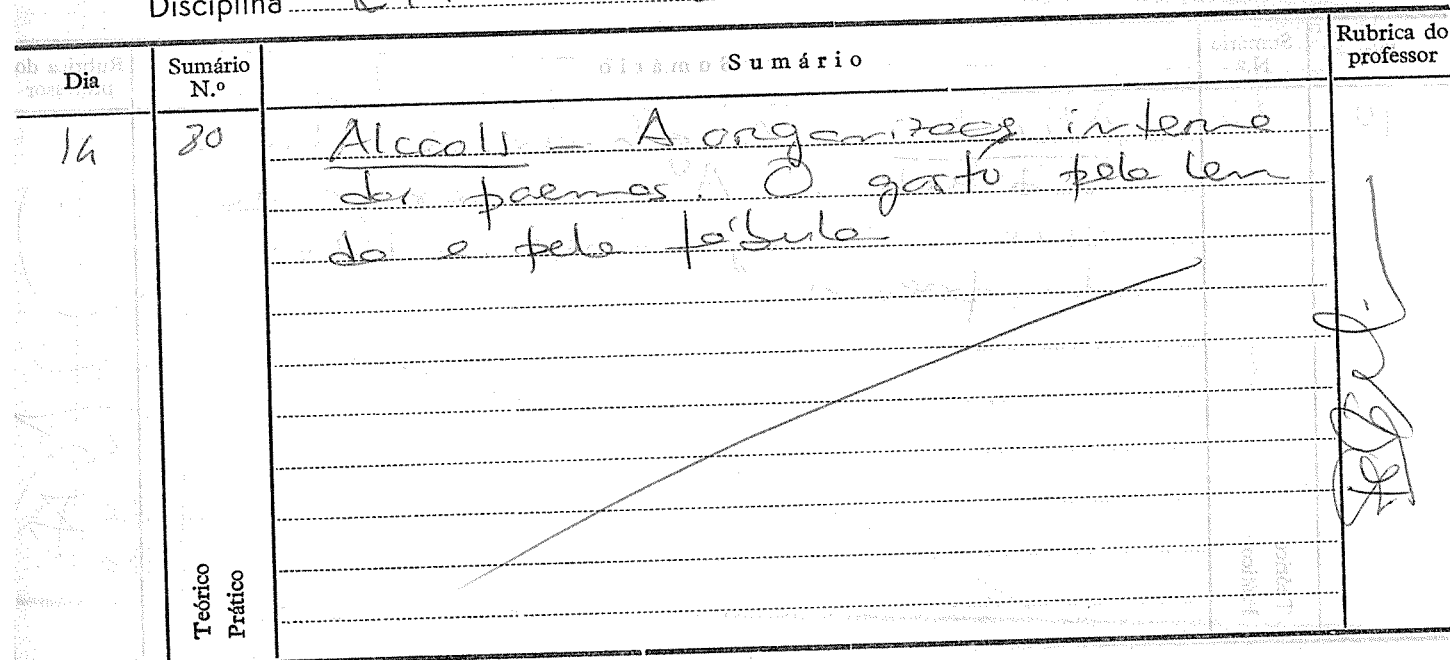 Disciplina
Dia
Sumário N.º
Sumário
Rubrica do professor
30
Alcools – A organização interna
dos poemas. O gosto pela len
da e pela fábula
Teórico
Prático